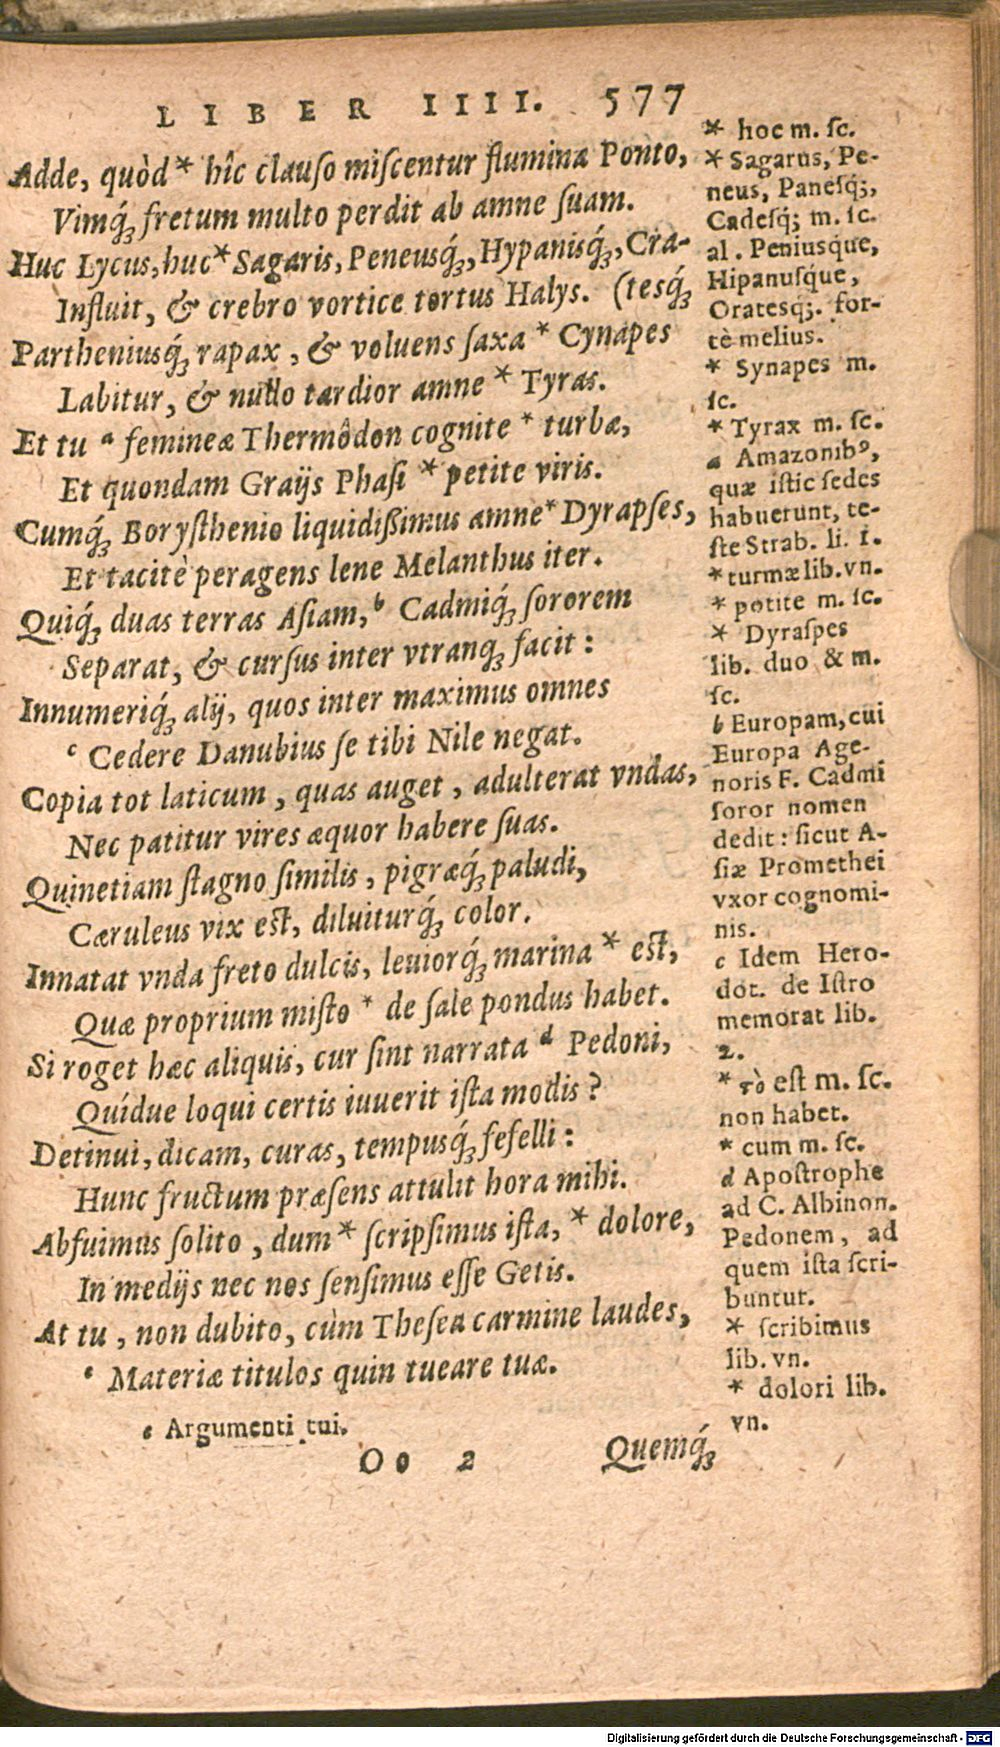 LIBER IIII. 577
Adde, quòd * hîc clauso miscentur flumina Ponto,
Vimq́; fretum multo perdit ab amne suam.
Huc Lycus, huc * Sagaris, Peneusq́;, Hypanisq́;, Cra-
Influit, & crebro vortice tortus Halys. (tesq́;
Partheniusq́; rapax, & voluens saxa * Cynapes
Labitur, & nullo tardior amne * Tyras.
Et tu a femineæ Thermôdon cognite * turbæ,
Et quondam Graijs Phasi * petite viris.
Cumq́; Borysthenio liquidißimus amne * Dyrapses,
Et tacitè peragens lene Melanthus iter.
Quiq́; duas terras Asiam, b Cadmiq́; sororem
Separat, & cursus inter vtranq; facit:
Innumeriq́; alij, quos inter maximus omnes
c Cedere Danubius se tibi Nile negat.
Copia tot laticum, quas auget, adulterat vndas,
Nec patitur vires æquor habere suas.
Quinetiam stagno similis, pigræq́; paludi,
Cæruleus vix est, diluiturq́; color.
Innatat vnda freto dulcis, leuiorq́; marina * est,
Quæ proprium misto * de sale pondus habet.
Si roget hæc aliquis, cur sint narrata d Pedoni,
Quídue loqui certis iuuerit ista modis?
Detinui, dicam, curas, tempusq́; fefelli:
Hunc fructum præsens attulit hora mihi.
Abfuimus solito, dum * scripsimus ista, * dolore,
In medijs nec nos sensimus esse Getis.
At tu, non dubito, cùm Thesea carmine laudes,
e Materiæ titulos quin tueare tuæ.
e Argumenti tui.
Oo 2 Quemq́;
* hoc m. sc.
* Sagarus, Pe-
neus, Panesq́;,
Cadesq́; m. sc.
al. Peniusque,
Hipanusque,
Oratesq;. for-
tè melius.
* Synapes m.
sc.
* Tyrax m. sc.
a Amazonibꝰ,
quæ istic sedes
habuerunt, te-
ste Strab. li. 1.
* turmæ lib. vn.
* potite m. sc.
* Dyraspes
lib. duo & m.
sc.
b Europam, cui
Europa Age-
noris F. Cadmi
soror nomen
dedit: sicut A-
siæ Promethei
vxor cognomi-
nis.
c Idem Hero-
dot. de Istro
memorat lib.
2.
* τὸ est m. sc.
non habet.
* cum m. sc.
d Apostrophe
ad C. Albinon.
Pedonem, ad
quem ista scri-
buntur.
* scribimus
lib. vn.
* dolori lib.
vn.
Digitalisierung gefördert durch die Deutsche Forschungsgemeinschaft - DFG